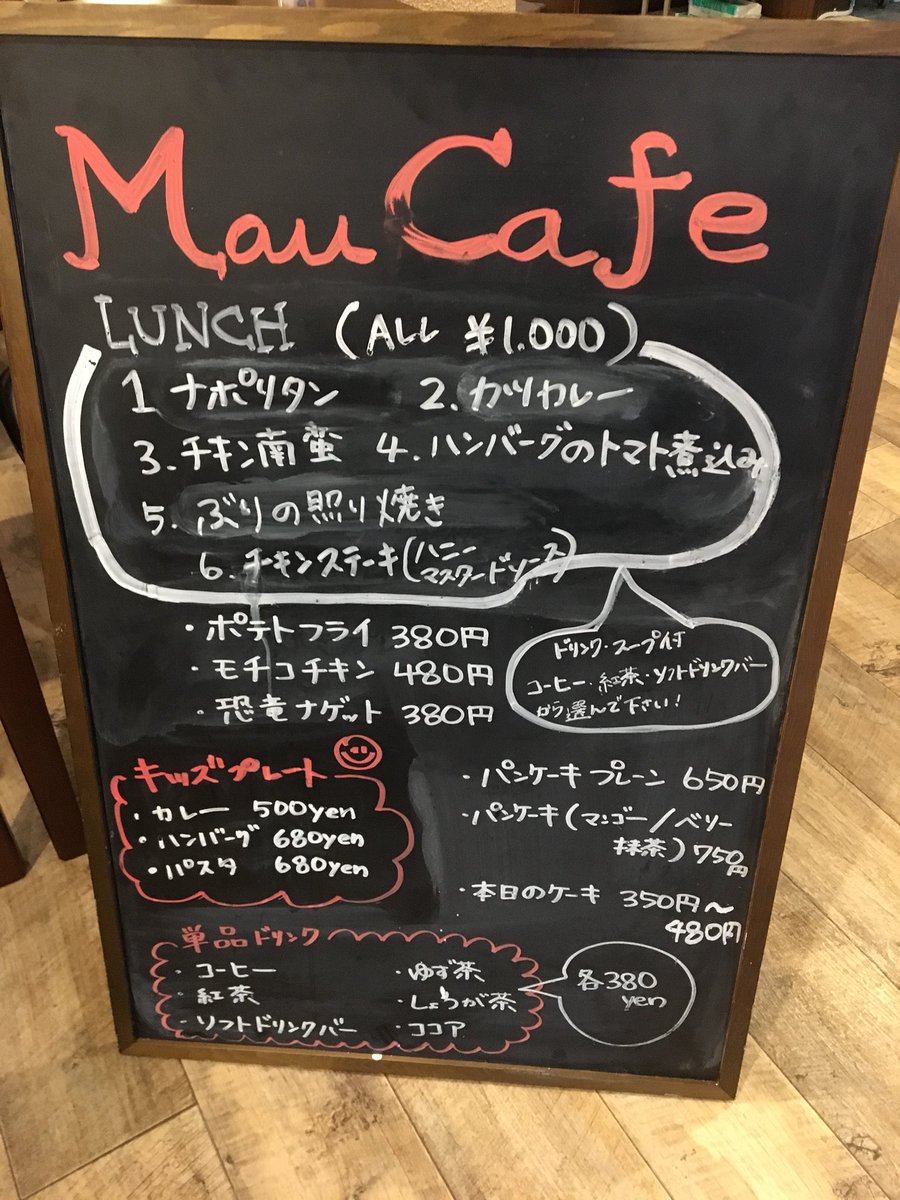 Mau Cafe
LUNCH (ALL ¥1.000)
1 ナポリタン 2. カツカレー
3. チキン南蛮 4. ハンバーグのトマト煮込み
5. ぶりの照り焼き
6. チキンステーキ(ハニーマスタードソース)
・ポテトフライ 380円
・モチコチキン 480円
・恐竜ナゲット 380円
ドリンク・スープ付
コーヒー・紅茶・ソフトドリンクバー
から選んで下さい!
キッズプレート
・カレー 500yen
・ハンバーグ 680yen
・パスタ 680yen
・パンケーキプレーン 650円
・パンケーキ(マンゴー/ベリー
抹茶)750円
・本日のケーキ 350円~
480円
単品ドリンク
・コーヒー ・ゆず茶
・紅茶 ・しょうが茶
・ソフトドリンクバー ・ココア
各380
yen